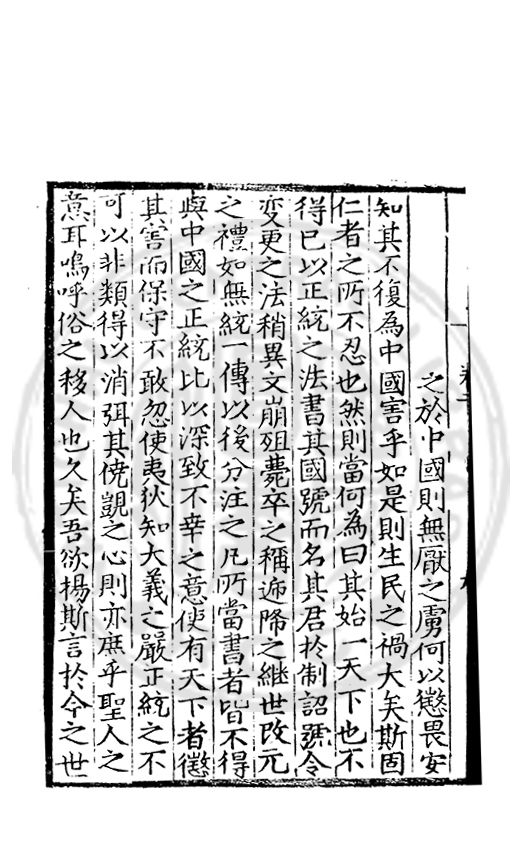 之於中國則無厭之虜何以懲畏安
知其不復為中國害乎如是則生民之禍大矣斯固
仁者之所不忍也然則當何為曰其始一天下也不
得已以正統之法書其國號而名其君於制詔號令
變更之法稍異文崩殂薨卒之稱遞降之継世改元
之禮如無統一傳以後分注之凡所當書者皆不得
與中國之正統比以深致不幸之意使有天下者懲
其害而保守不敢忽使夷狄知大義之嚴正統之不
可以非類得以消弭其僥覬之心則亦庶乎聖人之
意耳嗚呼俗之移人也久矣吾欲揚斯言於今之世